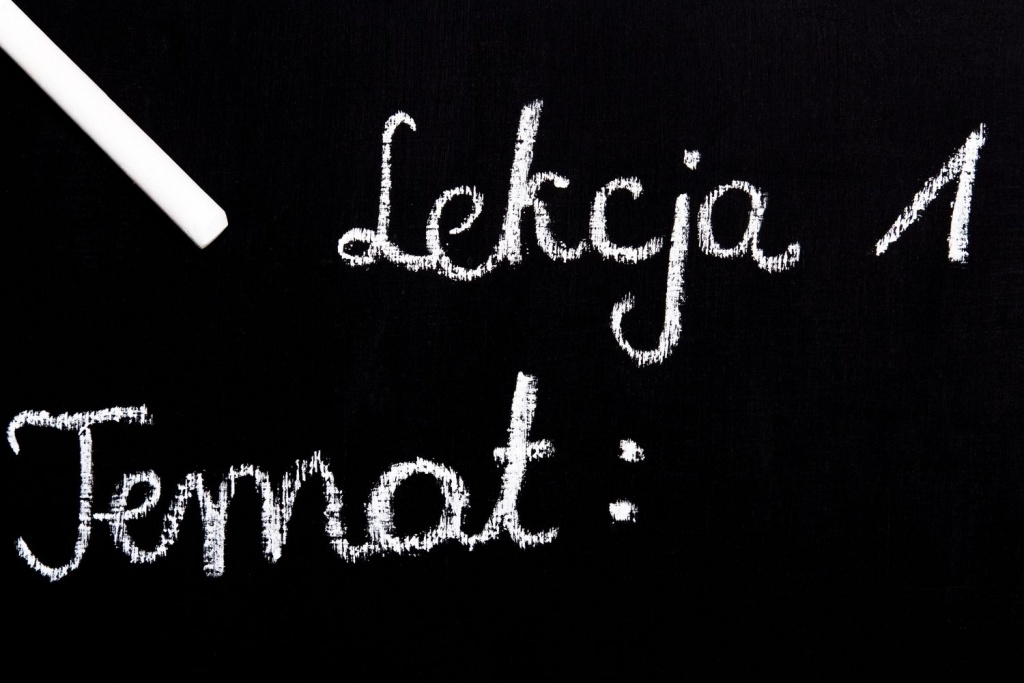 Lekcja 1
Temat :